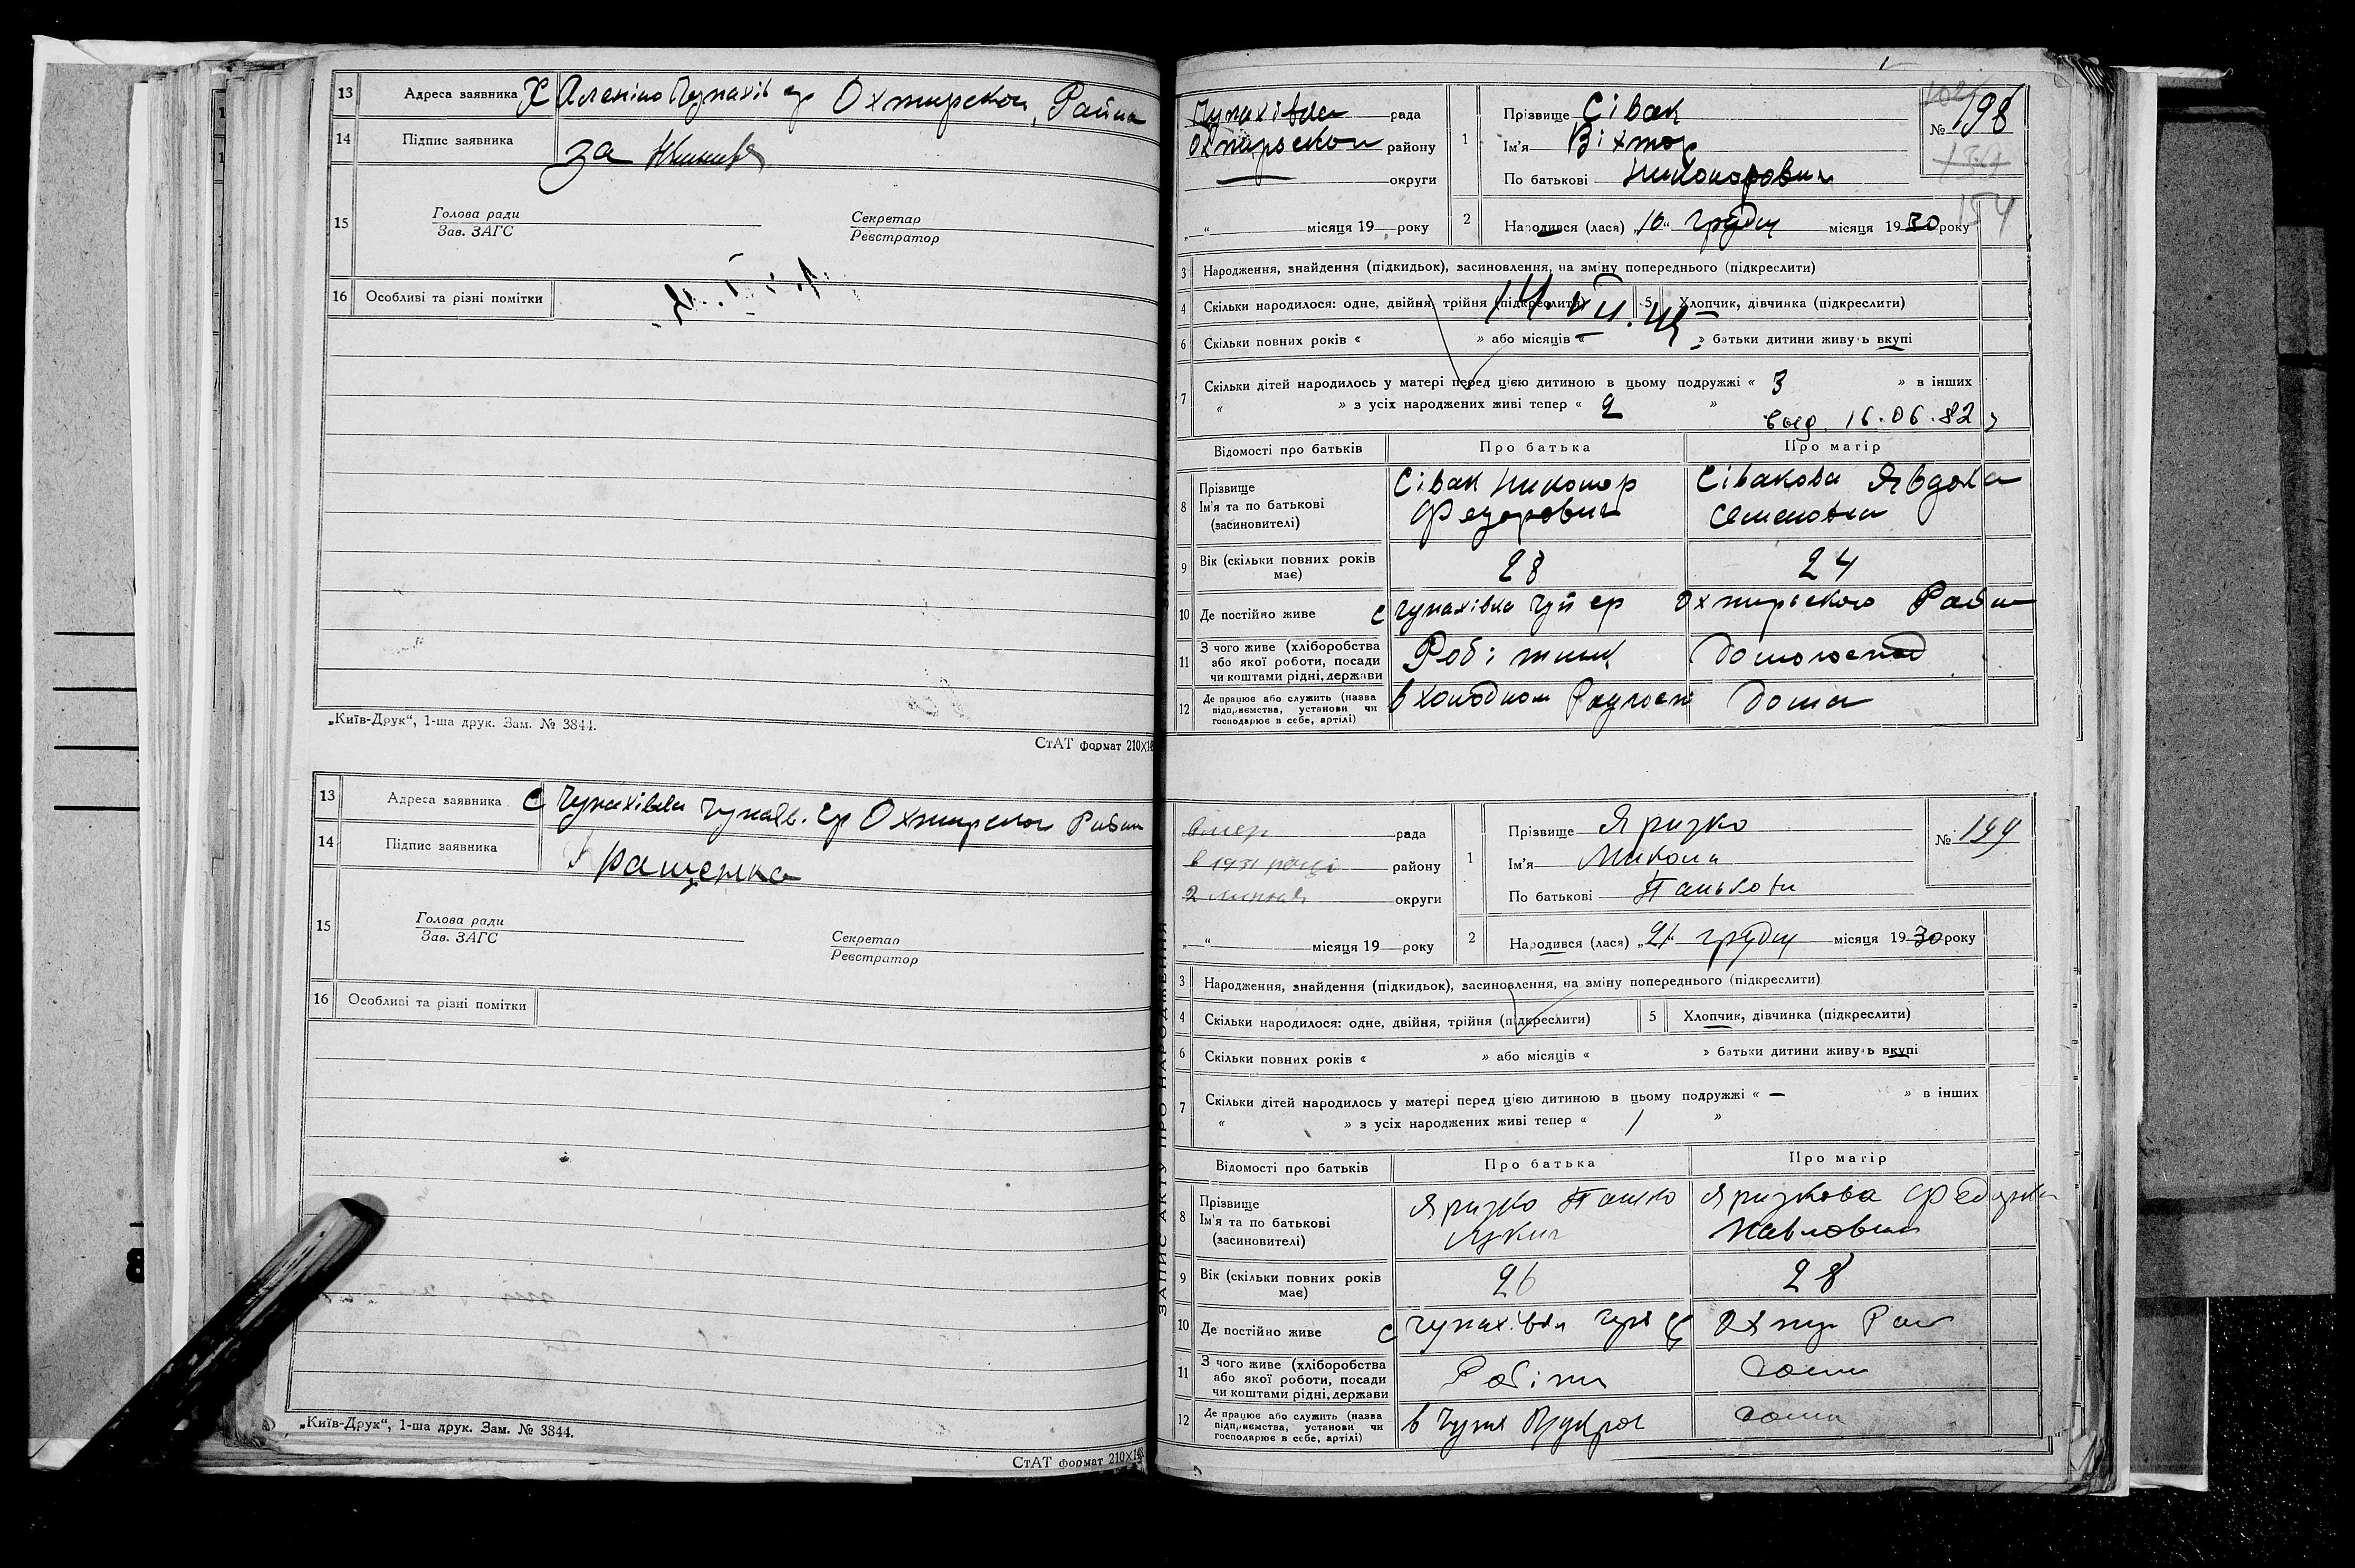 13 Адреса заявника Х Охтирскои Район
14 Підпис заявника за
15 Голова ради Секретар
Зав. ЗАГС Реєстратор
16 Особливі та різні помітки
„Київ-Друк“, 1-ша друк. Зам. № 3844.
СтАТ формат 210×14
13 Адреса заявника с Чупахівка Охтирскои Район
14 Підпис заявника
15 Голова ради Секретар
Зав. ЗАГС Реєстратор
16 Особливі та різні помітки
„Київ-Друк“, 1-ша друк. Зам. № 3844.
СтАТ формат 210×14
Чупахівка рада
району
округи
„ “ місяця 19 року
1 Прізвище Сівак
Ім'я Віктор
По батькові Никонорович
№ 198
154
2 Народився (лася) „16“ грудня місяця 1930 року
3 Народження, знайдення (підкидьок), засиновлення, на зміну попереднього (підкреслити)
4 Скільки народилося: одне, двійня, трійня (підкреслити) 5 Хлопчик, дівчинка (підкреслити)
6 Скільки повних років « » або місяців « » батьки дитини живуть вкупі
7 Скільки дітей народилось у матері перед цією дитиною в цьому подружжі « 3 » в інших
« » з усіх народжених живі тепер « 2 »
16.06.82
Відомості про батьків Про батька Про матір
8 Прізвище Ім'я та по батькові (засиновителі)
Сівак Никонор Федорович
Сівакова Явдоха Семеновна
9 Вік (скільки повних років має) 28 24
10 Де постійно живе с Чупахівка Чуп ср Охтирського Район
11 З чого живе (хліборобства або якої роботи, посади чи коштами рідні, держави Робітник
12 Де працює або служить (назва підприємства, установи чи господарює в себе, артілі) в дома
ЗАПИС АКТУ ПРО НАРОДЖЕННЯ
вмер рада
в 1931 році району
2 липня округи
„ “ місяця 19 року
1 Прізвище Яризко
Ім'я Микола
По батькові Панькови
№ 199
2 Народився (лася) „21“ грудня місяця 1930 року
3 Народження, знайдення (підкидьок), засиновлення, на зміну попереднього (підкреслити)
4 Скільки народилося: одне, двійня, трійня (підкреслити) 5 Хлопчик, дівчинка (підкреслити)
6 Скільки повних років « » або місяців « » батьки дитини живуть вкупі
7 Скільки дітей народилось у матері перед цією дитиною в цьому подружжі « — » в інших
« » з усіх народжених живі тепер « 1 »
Відомості про батьків Про батька Про матір
8 Прізвище Ім'я та по батькові (засиновителі)
Яризко Панько Лукич
Яризкова Федорка Павловна
9 Вік (скільки повних років має) 26 28
10 Де постійно живе с Чупахівка
11 З чого живе (хліборобства або якої роботи, посади чи коштами рідні, держави
12 Де працює або служить (назва підприємства, установи чи господарює в себе, артілі) в дома